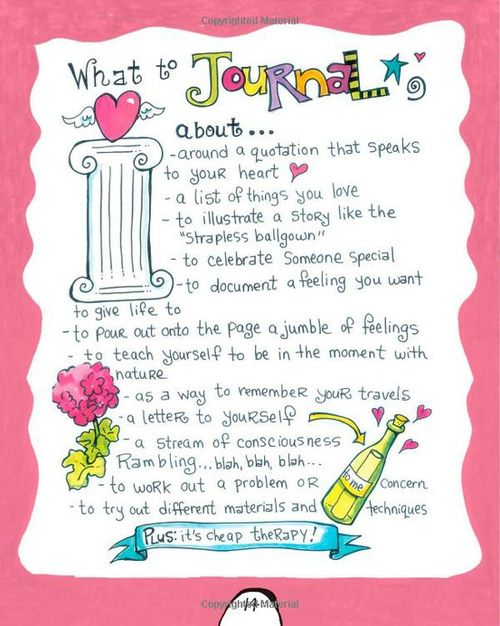 Copyrighted Material
What to JOURNAL
about...
-around a quotation that speaks
to your heart
- a list of things you love
- to illustrate a story like the
"strapless ballgown"
- to celebrate someone special
-to document a feeling you want
to give life to
-to pour out onto the page a jumble of feelings
- to teach yourself to be in the moment with
nature
- as a way to remember your travels
-a letter to yourself
- a stream of consciousness
Rambling... blah, blah, blah...
-to work out a problem or concern
to me
-to try out different materials and techniques
Plus: it's cheap therapy!
14
Copyrighted Material